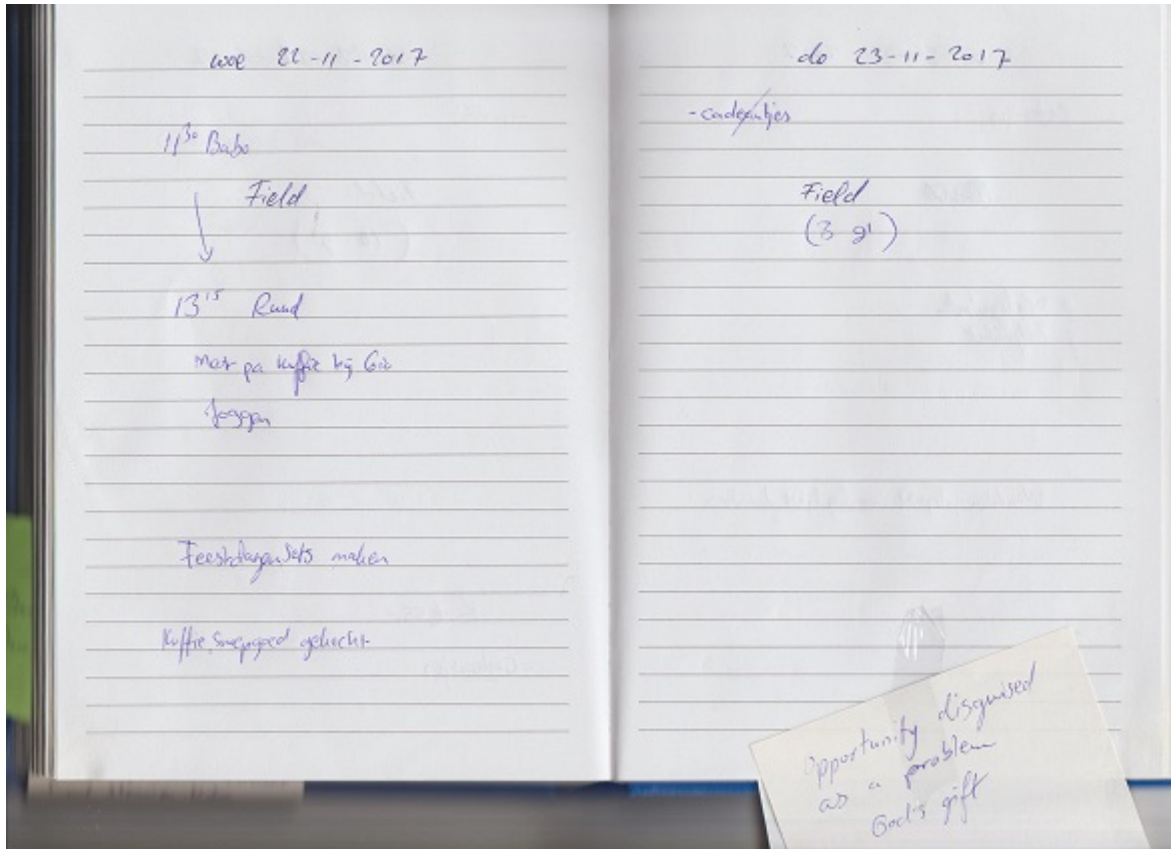 woe 22-11-2017
11³⁰ Babo
Field
13¹⁵ Ruud
met pa koffie bij Gio
Joggen
Feestdagensets maken
Koffie, snoepgoed gekocht
do 23-11-2017
-cadeautjes
Field
(3 gr)
Opportunity disguised
as a problem
God's gift